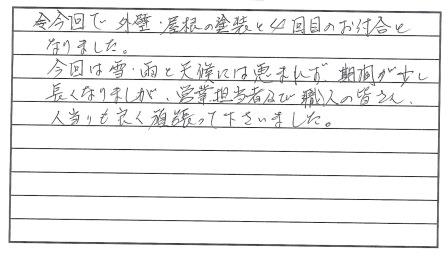 今回で外壁・屋根の塗装と4回目のお付合と
なりました。
今回は雪・雨と天候には恵まれず、期間が少し
長くなりましが、営業担当者及び職人の皆さん、
人当りも良く頑張って下さいました。